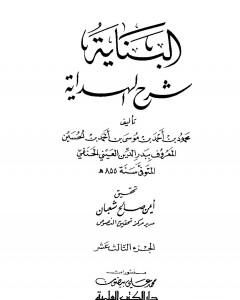 البناية
شرح الهداية
تأليف
محمود بن أحمد بن موسى بن أحمد بن الحسين
المعروف بدر الدين العيني الحنفي
المتوفى سنة ٨٥٥ هـ
تحقيق
أيمن صالح شعبان
الجزء الثالث عشر
منشورات
محمد علي بيضون
دار الكتب العلمية